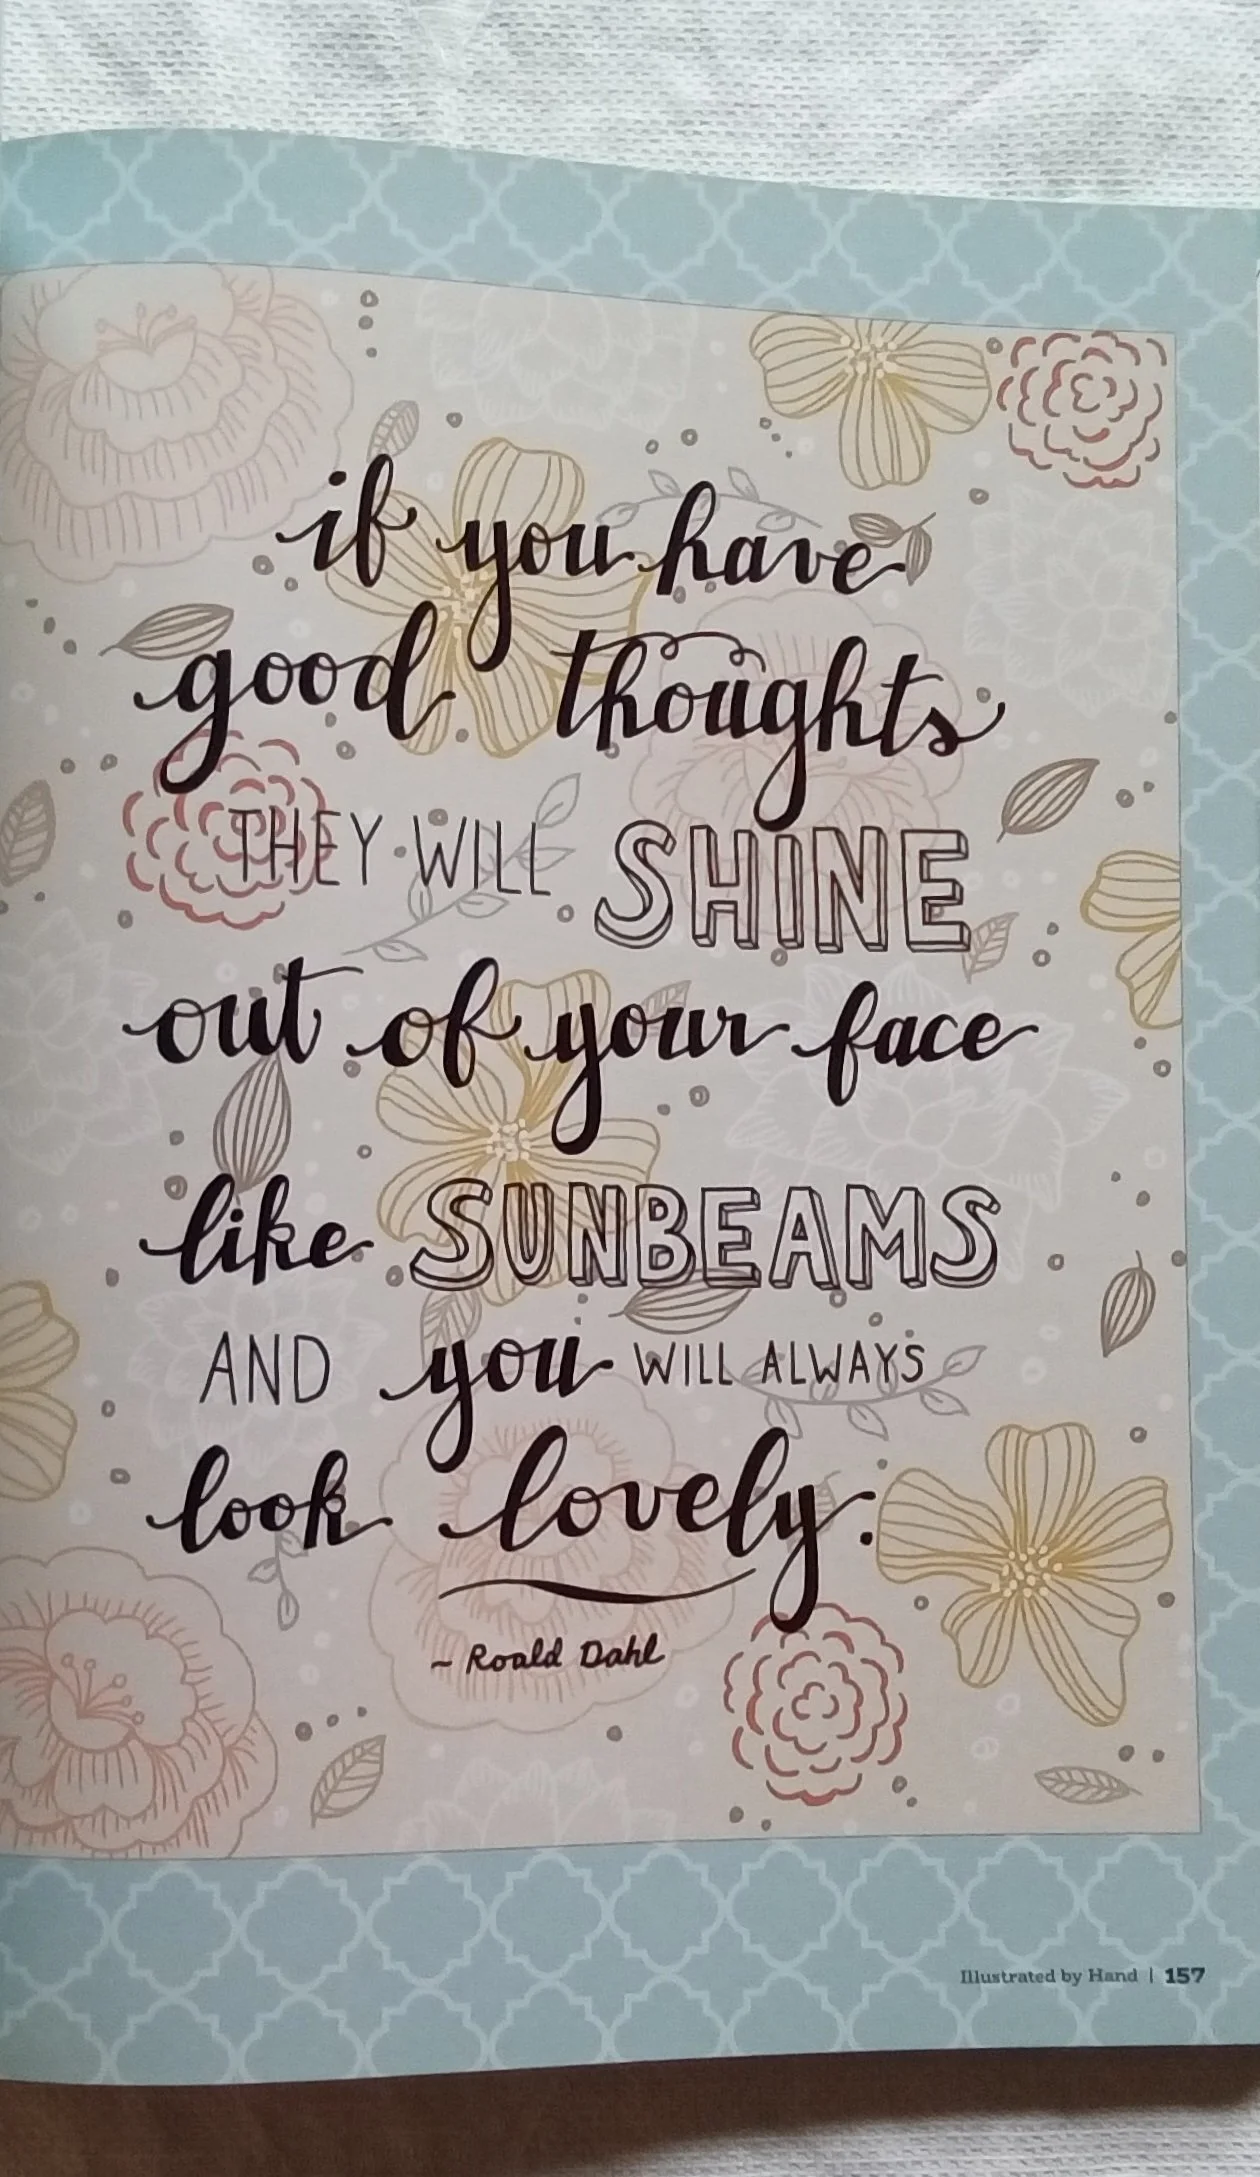 if you have
good thoughts
THEY WILL SHINE
out of your face
like SUNBEAMS
AND you WILL ALWAYS
look lovely.
~ Roald Dahl
Illustrated by Hand | 157